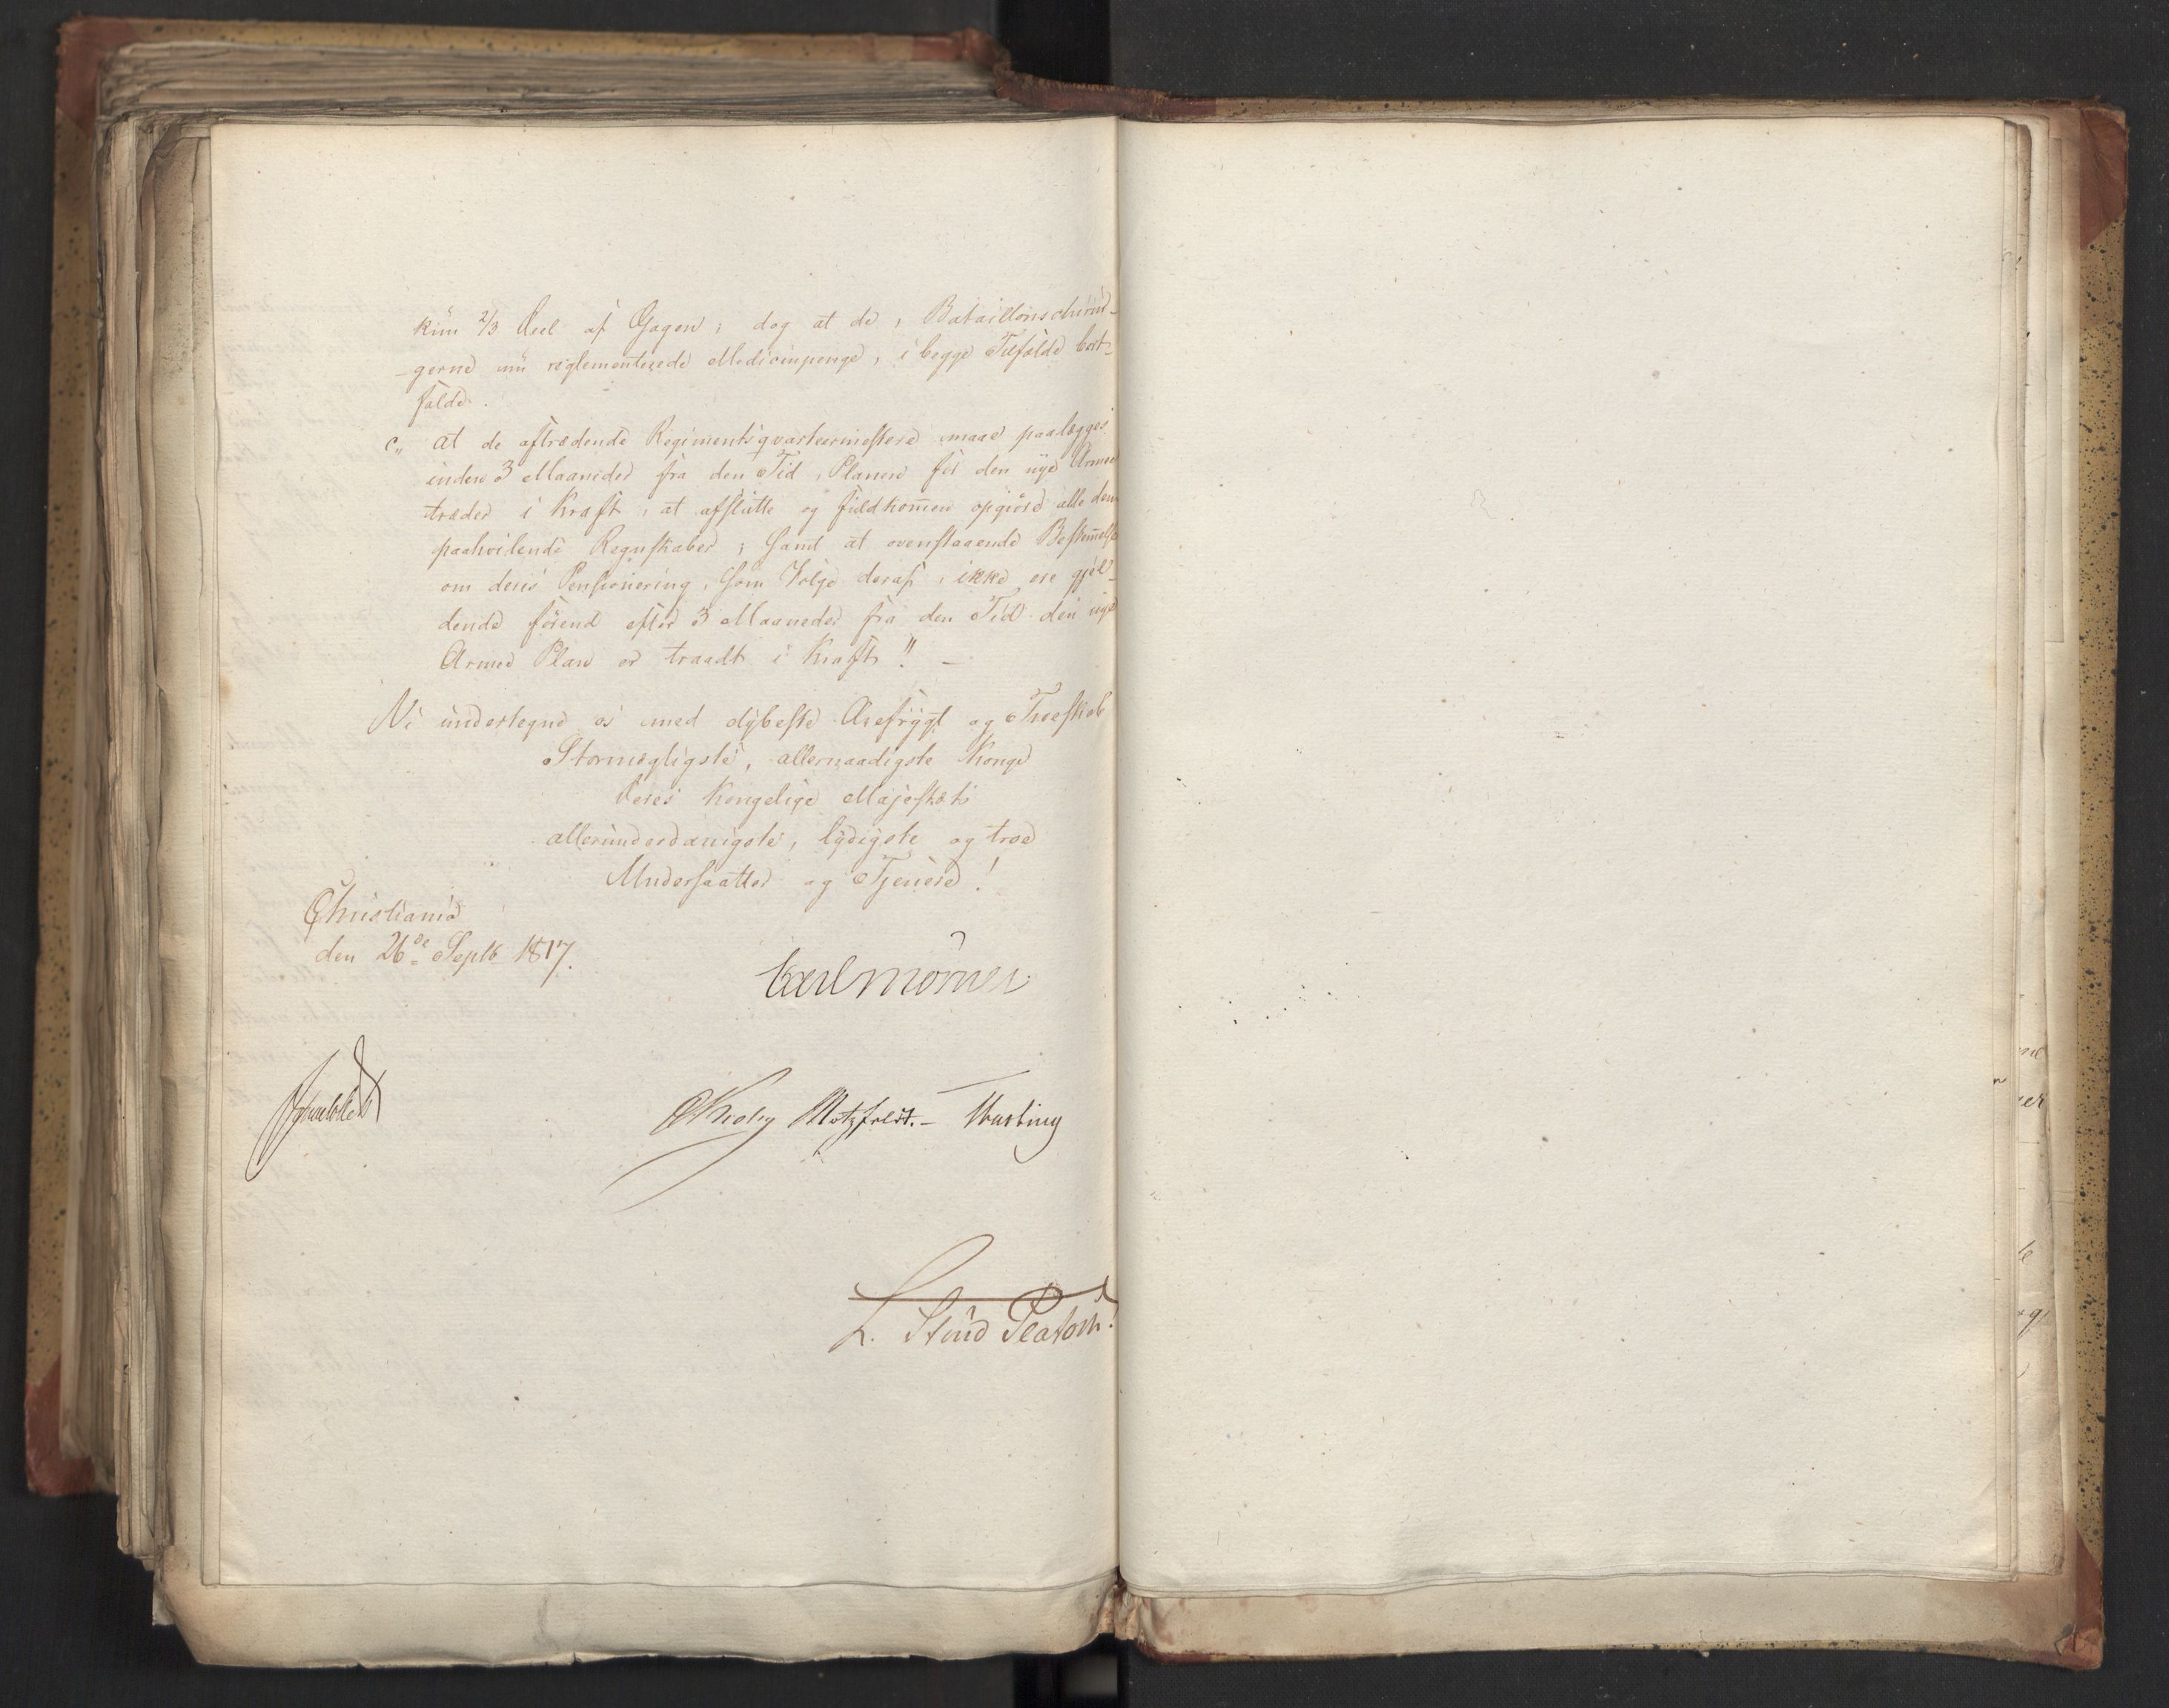 kun 2/3 Deel af Gagen; dog at de, Bataillonschirur-
-gerne nu reglementerede Medicinpenge, i begge Tilfælde bort-
falde.
c,, at de aftrædende Regimentsqvarteermestere maae paalægges
inden 3 Maaneder fra den Tid, Planen for den nye Armee
træder i Kraft, at afslutte og fuldkom̅en opgiøre alle dem
paahvilende Regnskaber; samt at ovenstaaende Bestem̅else
om deres Pensionering, som Følge deraf, ikke ere gjel-
dende førend efter 3 Maaneder fra den Tid den nye
Armee Plan er traadt i Kraft!! —
Vi undertegne os med dybeste Ærefrygt og Troeskab
Stormægtigste, allernaadigste Konge
Deres Kongelige Majestæts
allerunderdanigste, lydigste og troe
Undersaatter og Tjenere!
Christiania
den 26de Septb 1817.
Carl Mörner
Motzfeldt. — Hasting
L. Stoud Platou